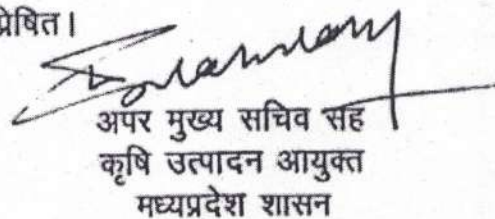 प्रेषित।
अपर मुख्य सचिव सह
कृषि उत्पादन आयुक्त
मध्यप्रदेश शासन